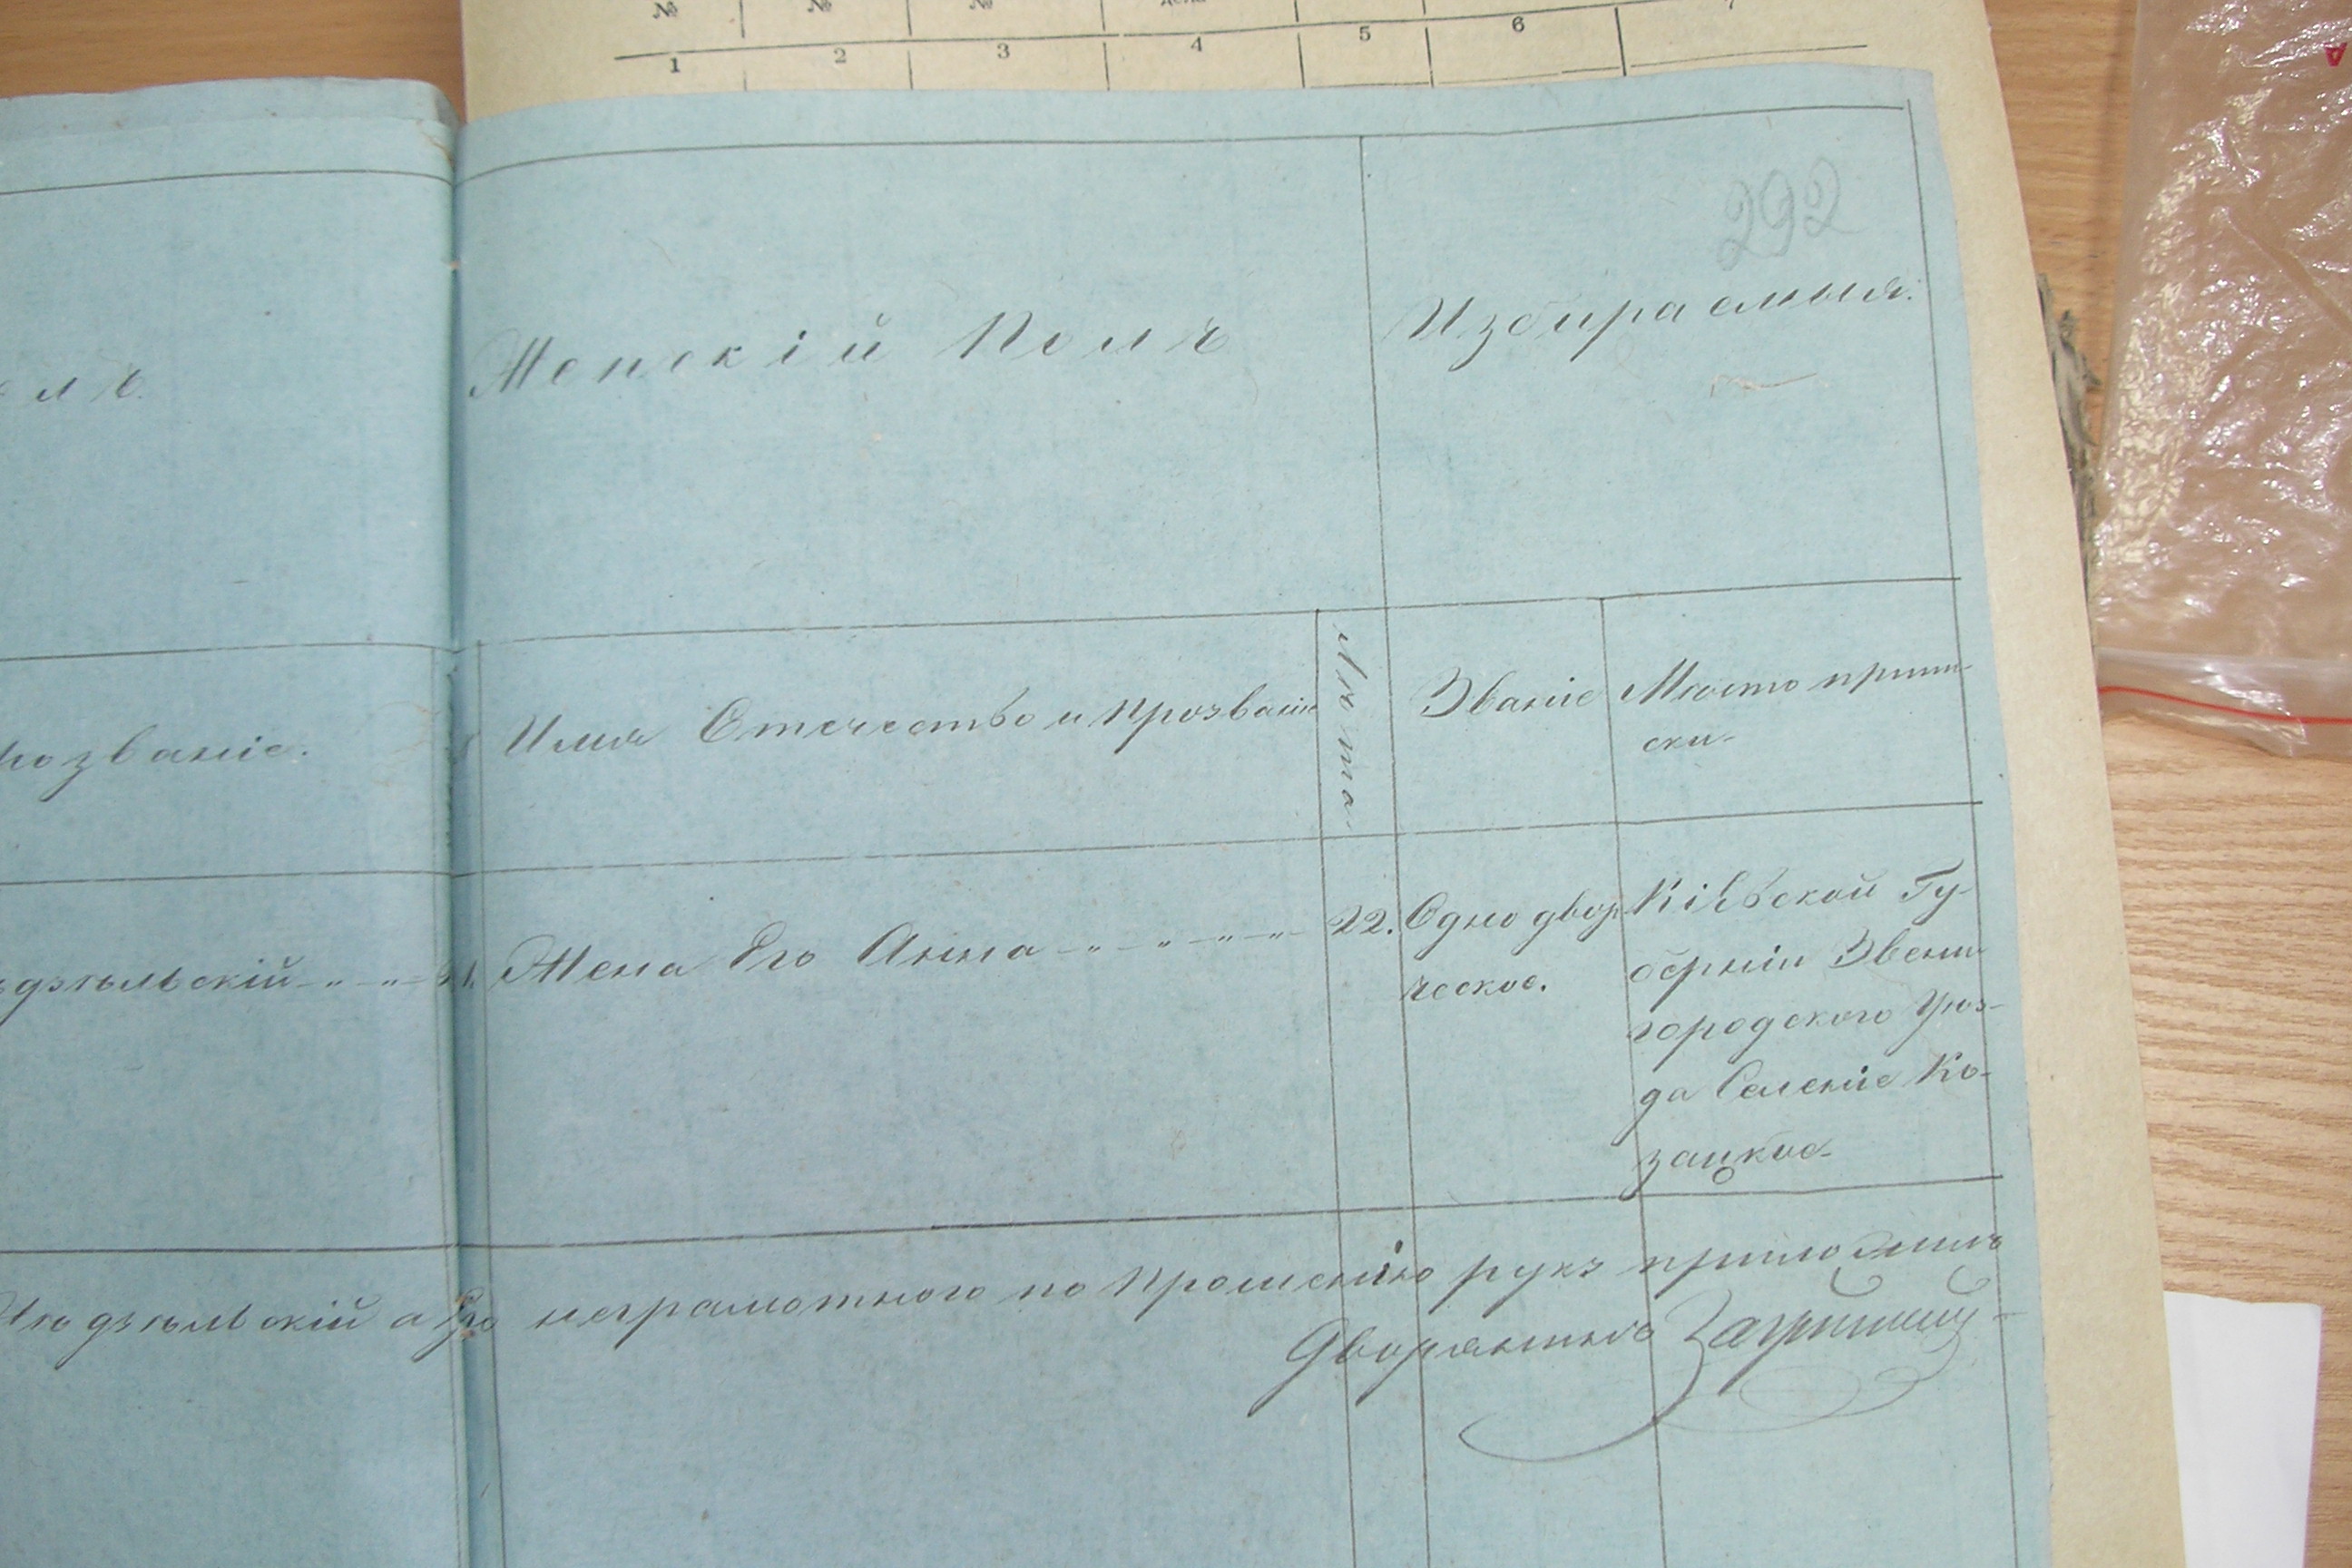 № № № дела
1 2 3 4 5 6 7
292
лъ. Женскій Полъ Избираемыя.
прозваніе. Имя Отечество и Прозваніе Лѣта Званіе Мѣсто припи-
ски.
дзѣльскій Жена Его Анна 22. Однодвор Кіевской Гу-
ческое. берніи Звени
городскаго Уѣз-
да Селеніе Ко-
зацкое
дзѣльскій а Его неграмотного по Прошенію руку приложилъ
Дворянинъ